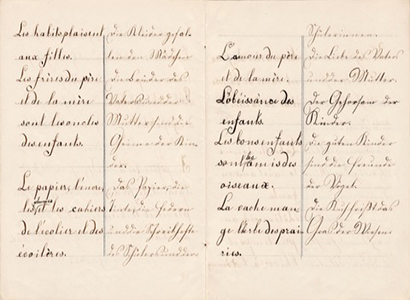 Les habits plaisent
aux filles.
Les frères du père
et de la mère
sont les oncles
des enfants.
Le papier, l'encre,
les et les cahiers
de l'écolier et des
écolières.
die Kleider gefal-
len den Mädchen
die Brüder des
Vaters und der
Mutter sind die
der Kin-
der.
das Papier, die
Tinte, die Federn
und die Schreibhefte
des Schülers und der
Schülerinnen.
L'amour du père
et de la mère.
L'obéissance des
enfants.
Les bons enfants
sont les amis des
oiseaux.
La vache man-
ge l'herbe des prai-
ries.
die Liebe des Vaters
und der Mutter.
Der Gehorsam der
Kinder.
die guten Kinder
sind die Freunde
der Vögel.
die Kuh frißt das
Gras der Wiesen.